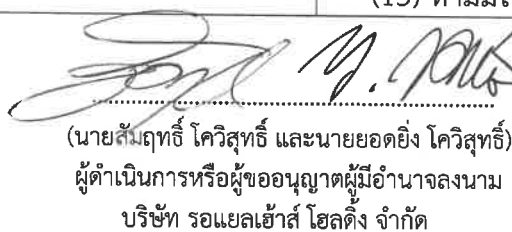 (15)
(นายสัมฤทธิ์ โควิสุทธิ์ และนายยอดยิ่ง โควิสุทธิ์)
ผู้ดำเนินการหรือผู้ขออนุญาตผู้มีอำนาจลงนาม
บริษัท รอแยลเฮ้าส์ โฮลดิ้ง จำกัด